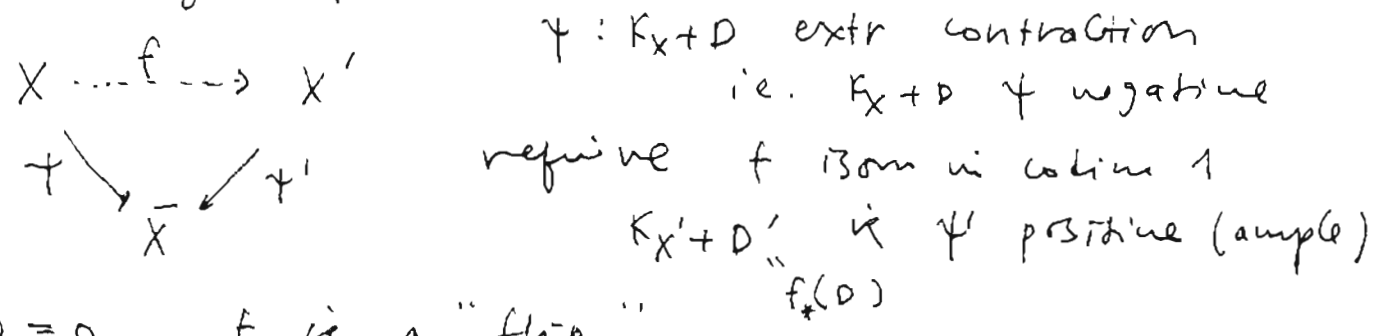 ψ : K_X + D extr contraction
X ....f...> X'
i.e. K_X + D ψ negative
require f isom in codim 1
ψ ψ'
X̄
K_X' + D' is ψ' positive (ample)
"
f_*(D)
f is a "flip"